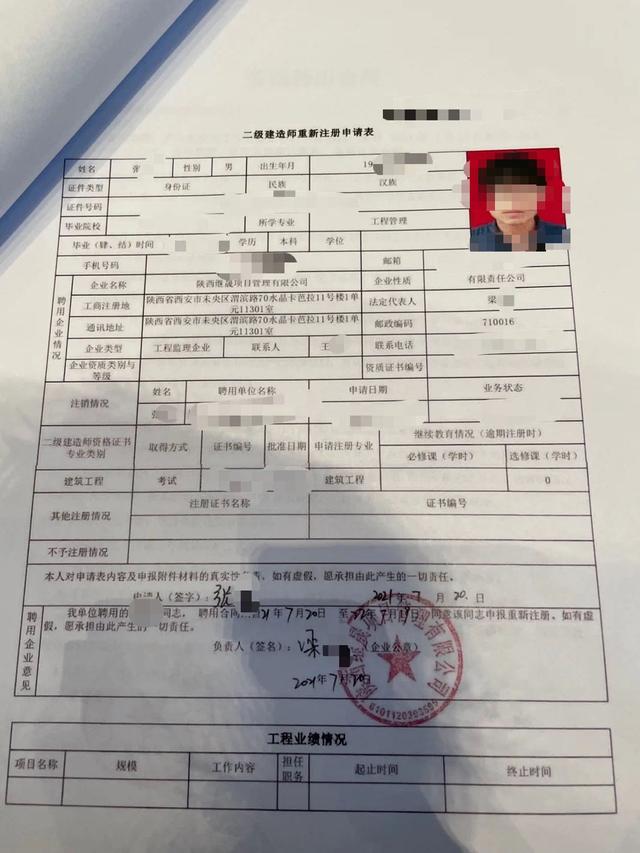 二级建造师重新注册申请表
姓名 张 性别 男 出生年月 19
证件类型 身份证 民族 汉族
证件号码
毕业院校 所学专业 工程管理
毕业（肄、结）时间 学历 本科 学位
手机号码 邮箱
聘用企业情况
企业名称 陕西继晟项目管理有限公司 企业性质 有限责任公司
工商注册地 陕西省西安市未央区渭滨路70水晶卡芭拉11号楼1单元11301室 法定代表人 梁
通讯地址 陕西省西安市未央区渭滨路70水晶卡芭拉11号楼1单元11301室 邮政编码 710016
企业类型 工程监理企业 联系人 王 联系电话
企业资质类别与等级 资质证书编号
注销情况 姓名 聘用单位名称 申请日期 业务状态
张
二级建造师资格证书专业类别 取得方式 证书编号 批准日期 申请注册专业 继续教育情况（逾期注册时）
必修课（学时） 选修课（学时）
建筑工程 考试 建筑工程 0
其他注册情况 注册证书名称 证书编号
不予注册情况
本人对申请表内容及申报附件材料的真实性负责，如有虚假，愿承担由此产生的一切责任。
申请人（签字）：张 2021年7月20日
聘用企业意见
我单位聘用的 同志，聘用合同 21年7月20日 至 22年7月19日 同意该同志申报重新注册。如有虚
假，愿承担由此产生的一切责任。
负责人（签名）：梁 （企业公章）
2021年7月20日
有限公司
6101120392595
工程业绩情况
项目名称 规模 工作内容 担任职务 起止时间 终止时间